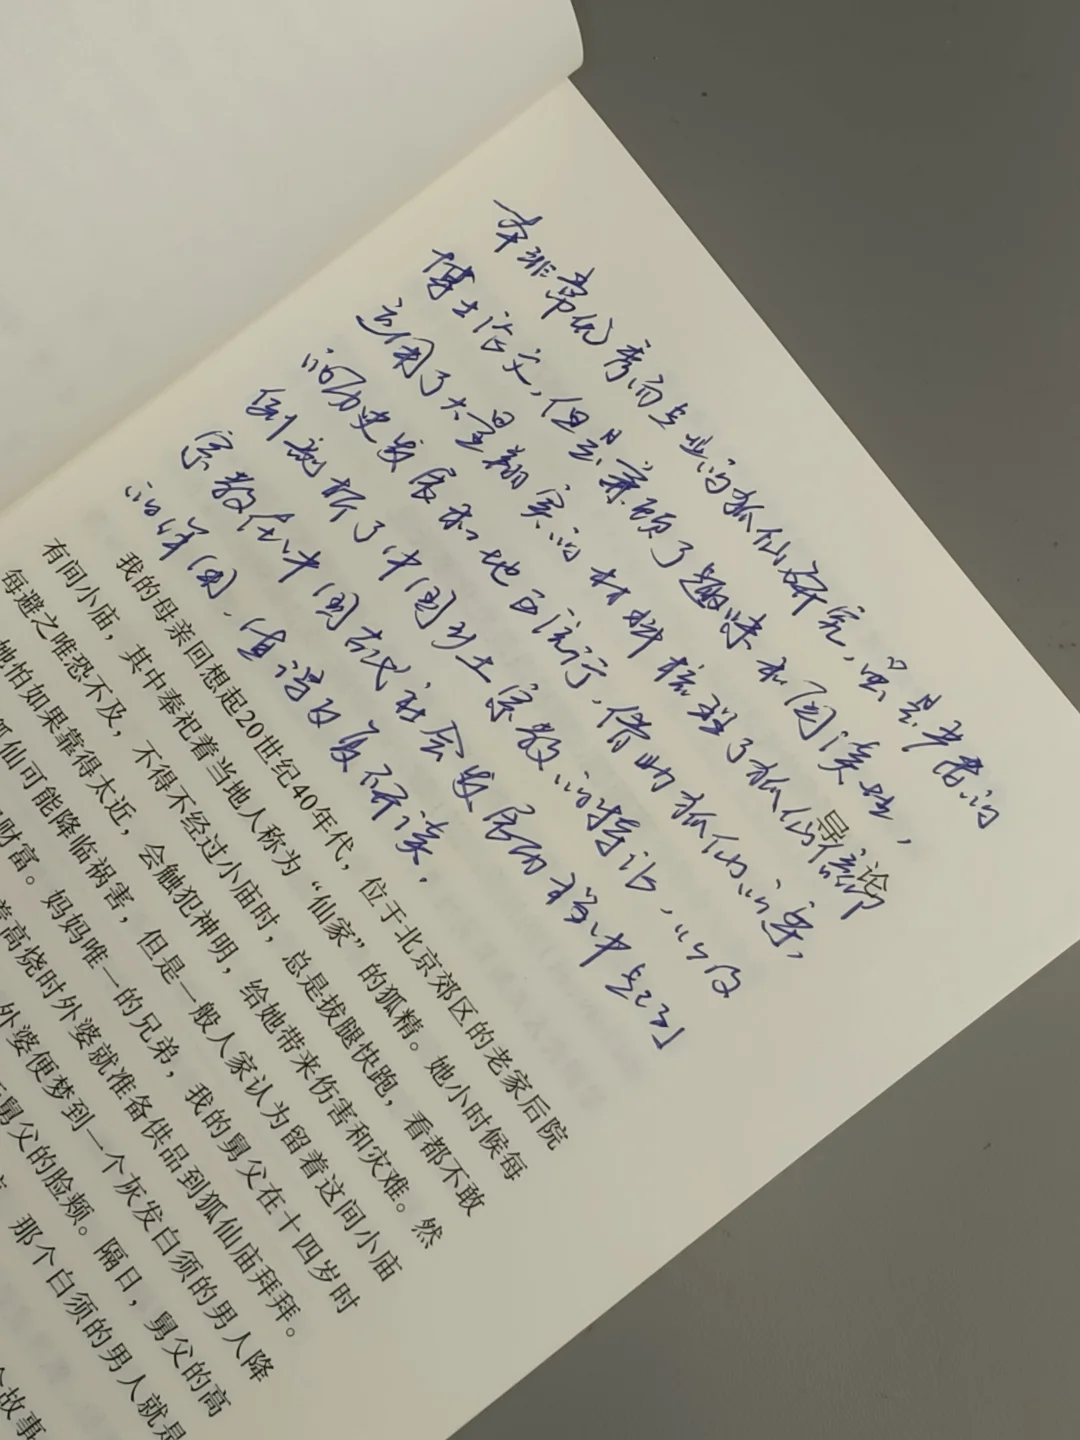 本非常优秀而专业的狐仙研究，虽是作者的
博士论文，但是兼顾了趣味和可读性，
运用了大量翔实的材料梳理了狐仙信仰
的历史发展和地方流行，借助狐仙的
剖析了中国乡土宗教的特计，以及
宗教在中国古代社会发展中
的作用，值得反复研读。
导论
我的母亲回想起20世纪40年代，位于北京郊区的老家后院
有间小庙，其中奉祀着当地人称为“仙家”的狐精。她小时候每
每避之唯恐不及，不得不经过小庙时，总是拔腿快跑，看都不敢
她怕如果靠得太近，会触犯神明，给她带来伤害和灾难。然
狐仙可能降临祸害，但是一般人家认为留着这间小庙
财富。妈妈唯一的兄弟，我的舅父在十四岁时
着高烧时外婆就准备供品到狐仙庙拜拜。
外婆便梦到一个灰发白须的男人降
舅父的脸颊。隔日，舅父的高
那个白须的男人就是
故事